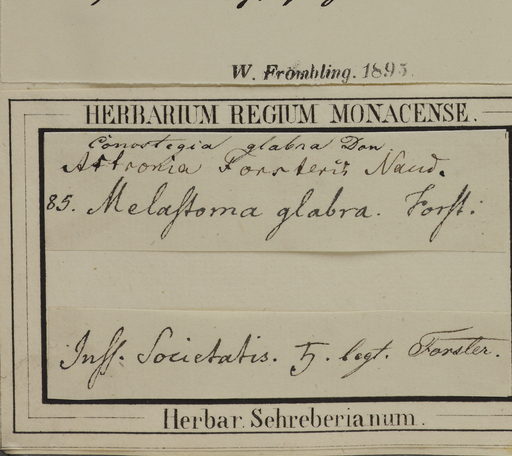 W. Frömbling. 1895.
HERBARIUM REGIUM MONACENSE.
Conostegia glabra Don.
Astronia Forsteri Naud.
85. Melaſtoma glabra. Forſt:
Inſſ. Societatis. ♄. legt. Forster.
Herbar. Schreberianum.